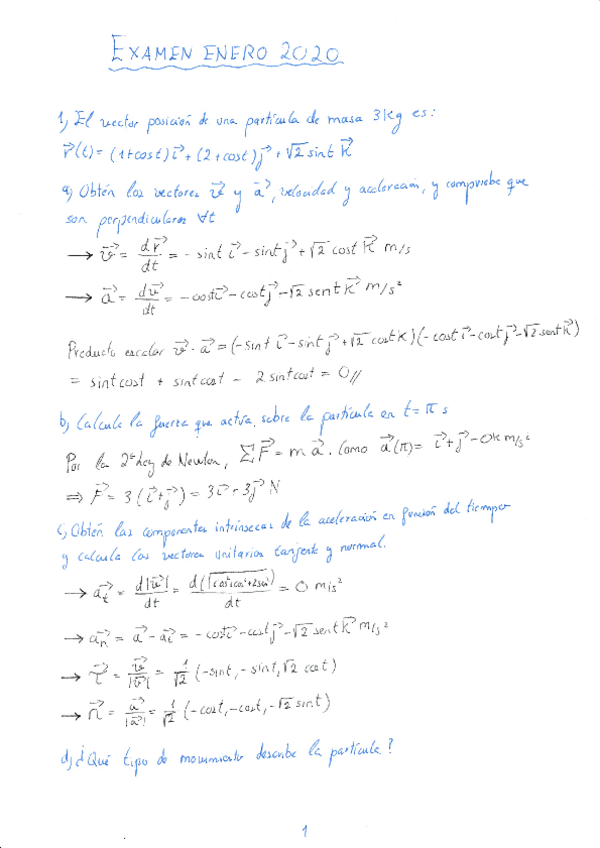 EXAMEN ENERO 2020
1) El vector posición de una partícula de masa 3kg es:
r⃗(t) = (1+cost)i⃗ + (2+cost)j⃗ + √2 sint k⃗
a) Obtén los vectores v⃗ y a⃗, velocidad y aceleración, y compruebe que
son perpendiculares ∀t
→ v⃗ = dr⃗/dt = - sint i⃗ - sint j⃗ + √2 cost k⃗ m/s
→ a⃗ = dv⃗/dt = - cost i⃗ - cost j⃗ - √2 sent k⃗ m/s²
Producto escalar v⃗ · a⃗ = (-sint i⃗ - sint j⃗ + √2 cost k)(-cost i⃗ - cost j⃗ - √2 sent k⃗)
= sint cost + sint cost - 2 sint cost = 0//
b) Calcula la fuerza que actúa sobre la partícula en t = π s
Por la 2ª Ley de Newton, ΣF⃗ = m a⃗. Como a⃗(π) = i⃗ + j⃗ - 0k m/s²
⇒ F⃗ = 3(i⃗ + j⃗) = 3i⃗ + 3j⃗ N
c) Obtén las componentes intrínsecas de la aceleración en función del tiempo
y calcula los vectores unitarios tangente y normal.
→ a⃗t = d|v⃗|/dt = = 0 m/s²
→ a⃗n = a⃗ - a⃗t = - cost i⃗ - cost j⃗ - √2 sent k⃗ m/s²
→ τ⃗ = v⃗/|v⃗| = 1/√2 (-sint, -sint, √2 cost)
→ n⃗ = a⃗/|a⃗| = 1/√2 (-cost, -cost, -√2 sint)
d) ¿Qué tipo de movimiento describe la partícula?
1